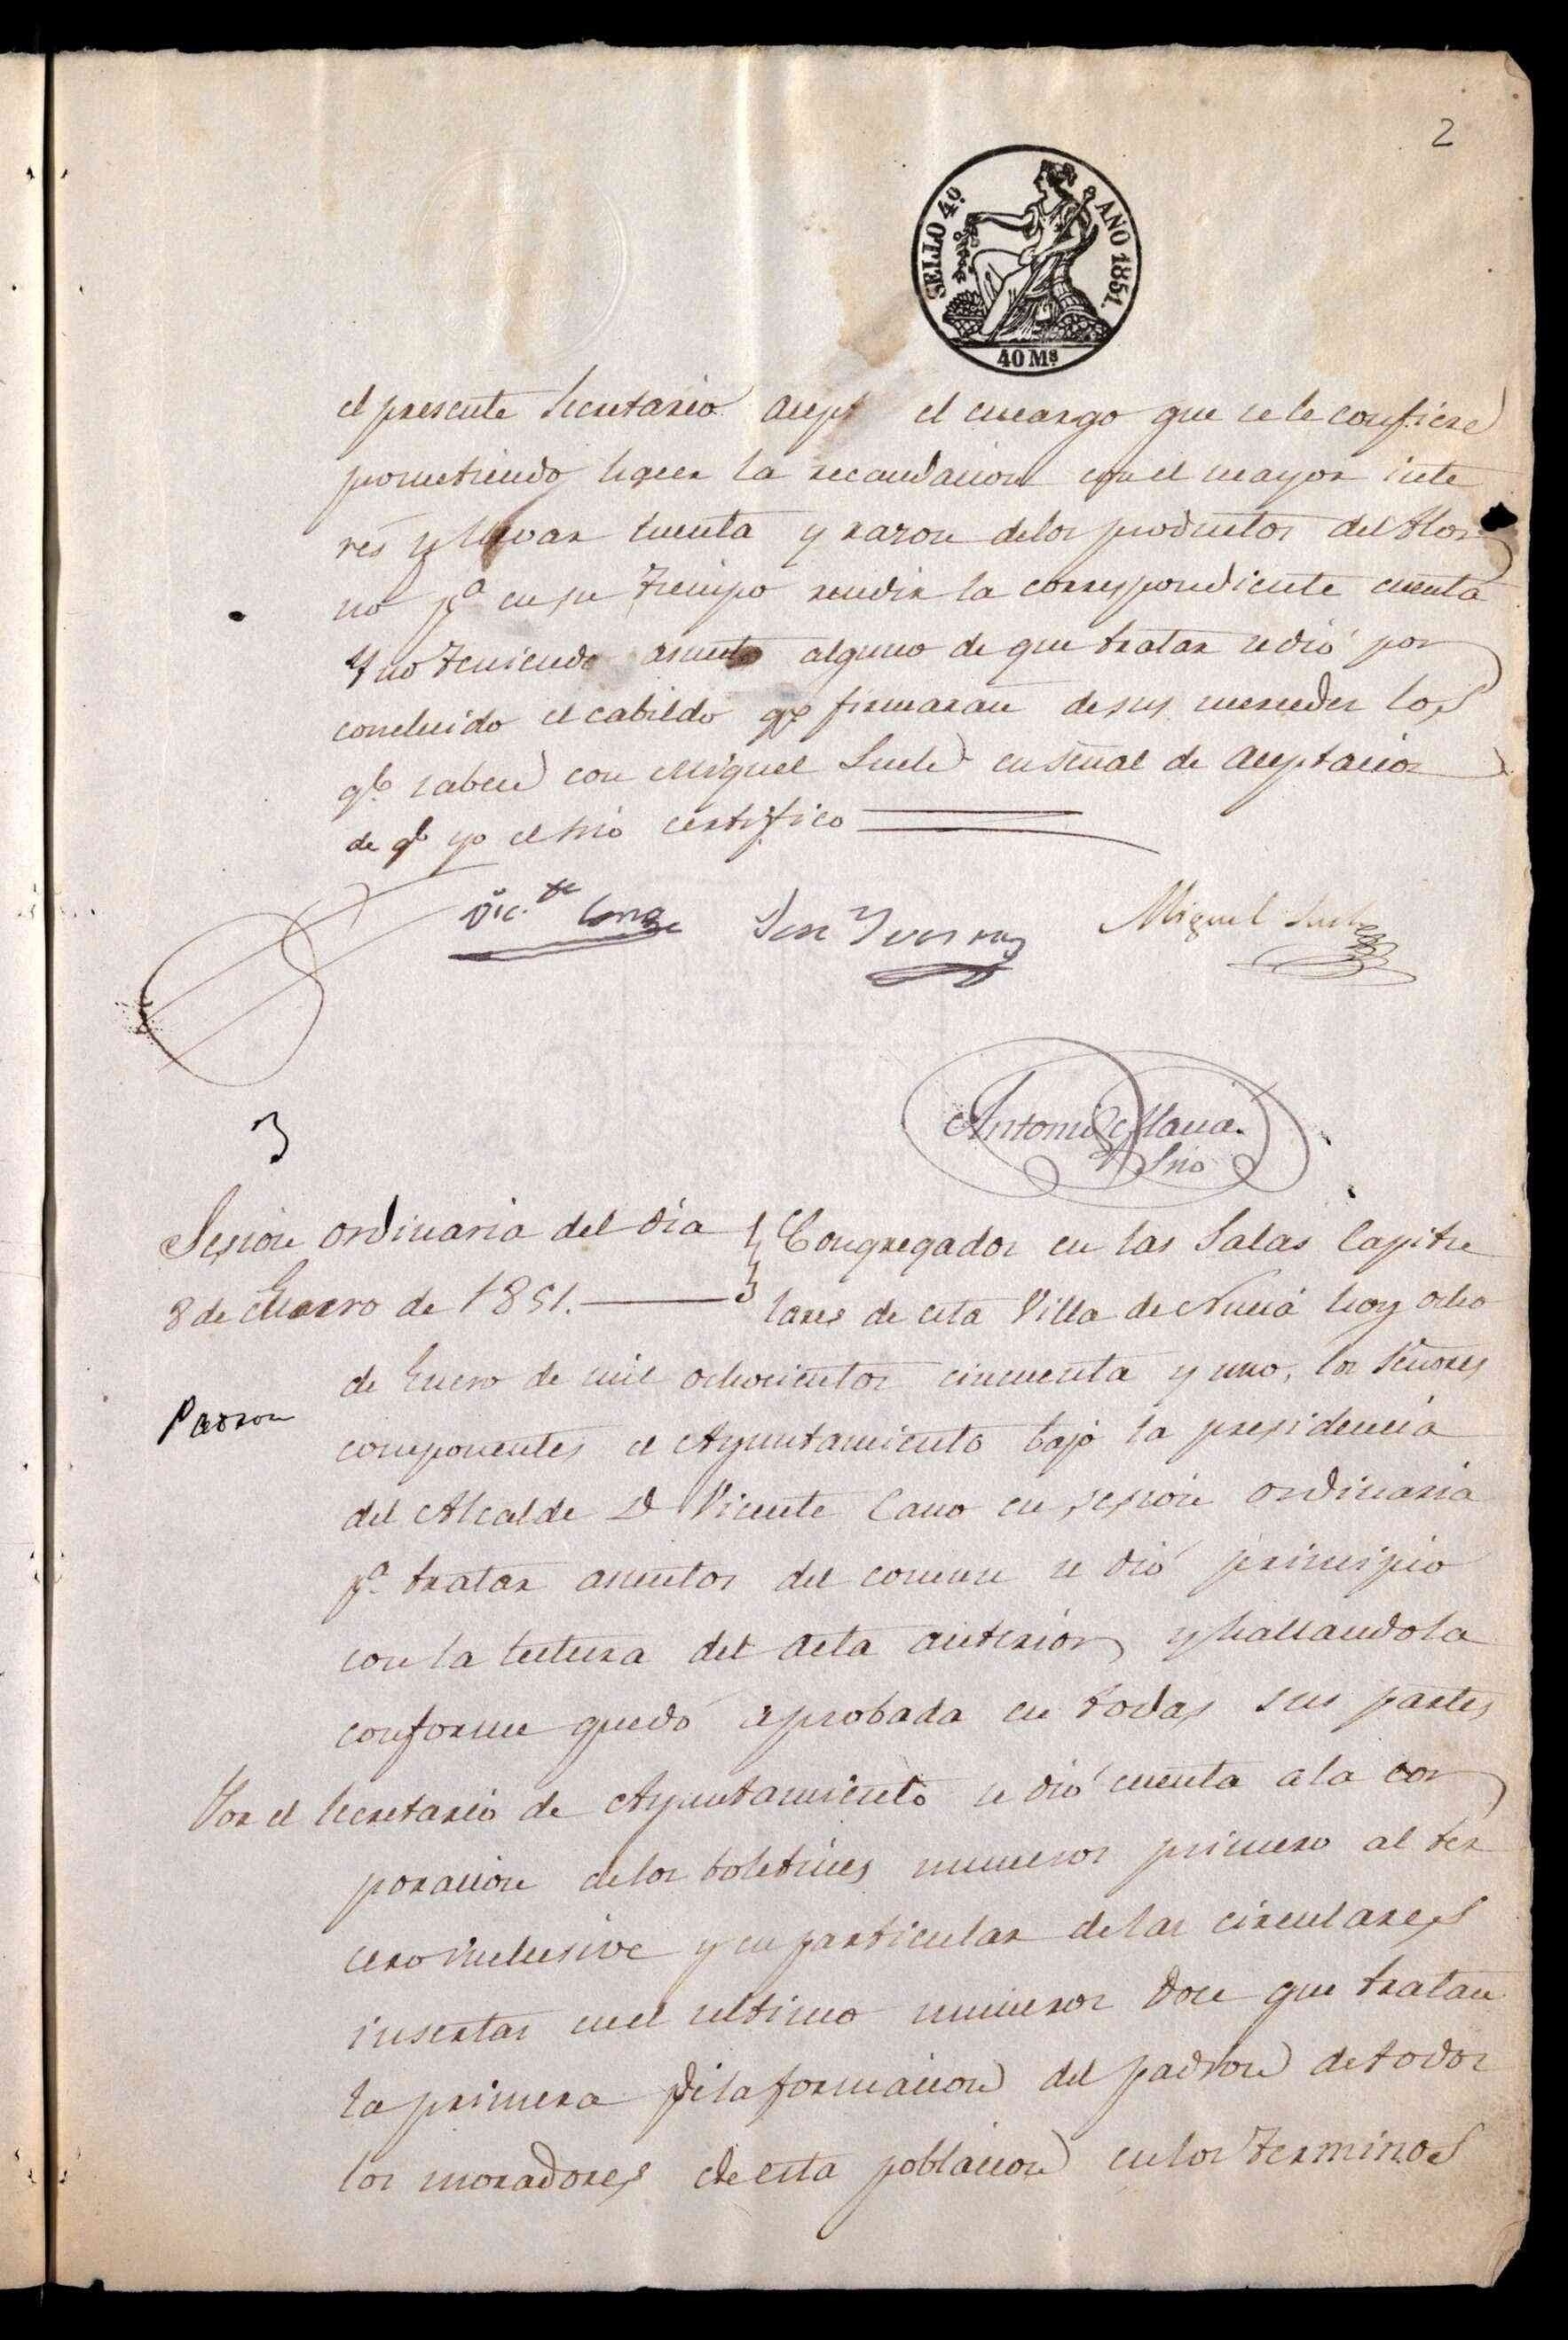 2
SELLO 4º AÑO 1851.
40 Ms
el presente Secretario acep el encargo que se le confiere
prometiendo hacer la recaudacion con el mayor inte
res y llevar cuenta y razon delos productos del Hor
no pª en su tiempo rendir la correspondiente cuenta
Y no teniendo asunto alguno de que tratar se dió por
concluido el cabildo qe firmaran de sus mercedes los
qe saben con Miguel en señal de aceptacion
de qe yo el Srio certifico
Vic.te Cano
Miguel
Antonio
Srio
3
Sesion ordinaria del dia
8 de Enero de 1851.
Congregados en las Salas Capitu
lares de esta Villa de Nucia hoy ocho
de Enero de mil ochocientos cincuenta y uno, los Señores
Padron
componentes el Ayuntamiento bajo la presidencia
del Alcalde D Vicente Cano en sesion ordinaria
pª tratar asuntos del comun se dió principio
con la lectura del acta anterior y hallandola
conforme quedó aprobada en todas sus partes
Por el Secretario de Ayuntamiento se dió cuenta ala cor
poracion delos boletines numeros primero al ter
cero inclusive y en particular delas circulares
insertas en el ultimo numeros doce que tratan
la primera dela formacion del padron de todos
los moradores de esta poblacion en los terminos